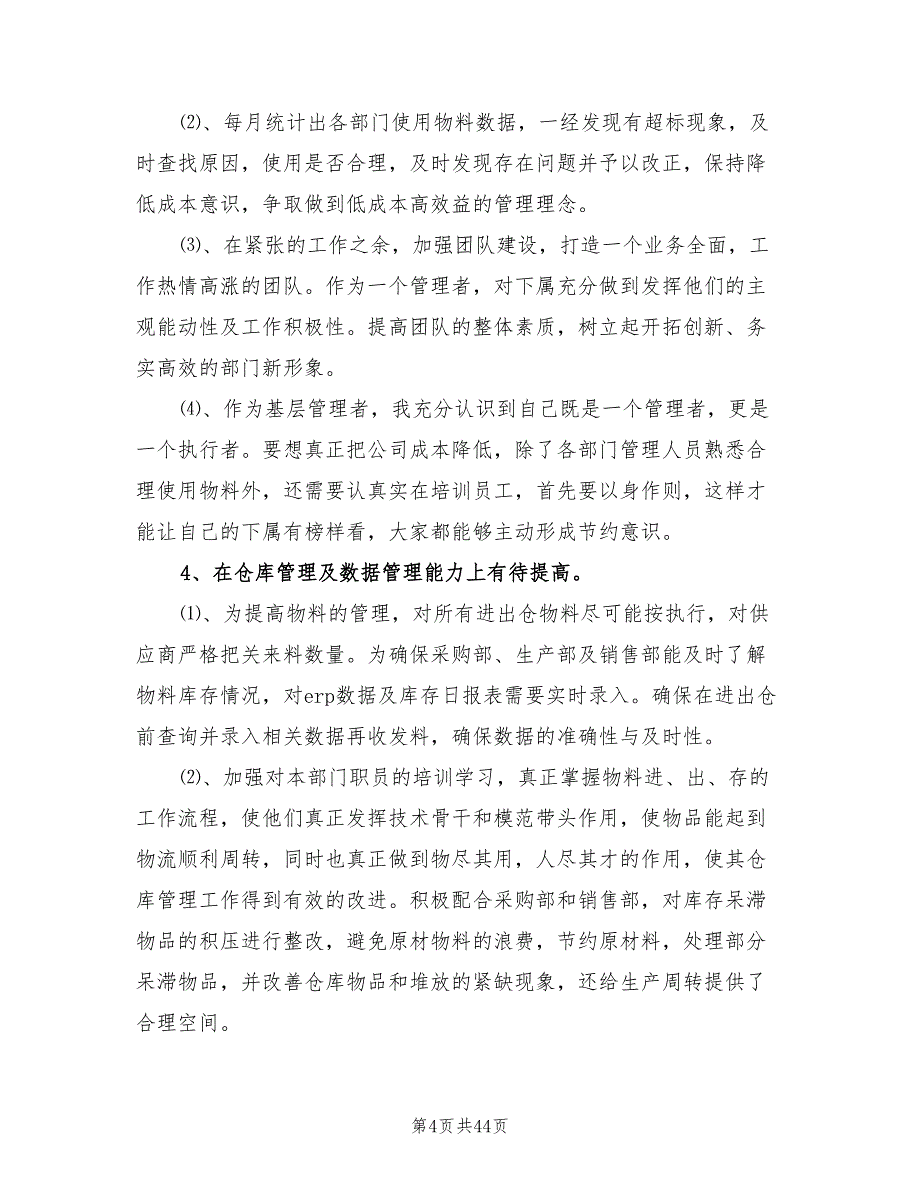 ⑵、每月统计出各部门使用物料数据，一经发现有超标现象，及
时查找原因，使用是否合理，及时发现存在问题并予以改正，保持降
低成本意识，争取做到低成本高效益的管理理念。
⑶、在紧张的工作之余，加强团队建设，打造一个业务全面，工
作热情高涨的团队。作为一个管理者，对下属充分做到发挥他们的主
观能动性及工作积极性。提高团队的整体素质，树立起开拓创新、务
实高效的部门新形象。
⑷、作为基层管理者，我充分认识到自己既是一个管理者，更是
一个执行者。要想真正把公司成本降低，除了各部门管理人员熟悉合
理使用物料外，还需要认真实在培训员工，首先要以身作则，这样才
能让自己的下属有榜样看，大家都能够主动形成节约意识。
4、在仓库管理及数据管理能力上有待提高。
⑴、为提高物料的管理，对所有进出仓物料尽可能按执行，对供
应商严格把关来料数量。为确保采购部、生产部及销售部能及时了解
物料库存情况，对erp数据及库存日报表需要实时录入。确保在进出仓
前查询并录入相关数据再收发料，确保数据的准确性与及时性。
⑵、加强对本部门职员的培训学习，真正掌握物料进、出、存的
工作流程，使他们真正发挥技术骨干和模范带头作用，使物品能起到
物流顺利周转，同时也真正做到物尽其用，人尽其才的作用，使其仓
库管理工作得到有效的改进。积极配合采购部和销售部，对库存呆滞
物品的积压进行整改，避免原材物料的浪费，节约原材料，处理部分
呆滞物品，并改善仓库物品和堆放的紧缺现象，还给生产周转提供了
合理空间。
第4页共44页